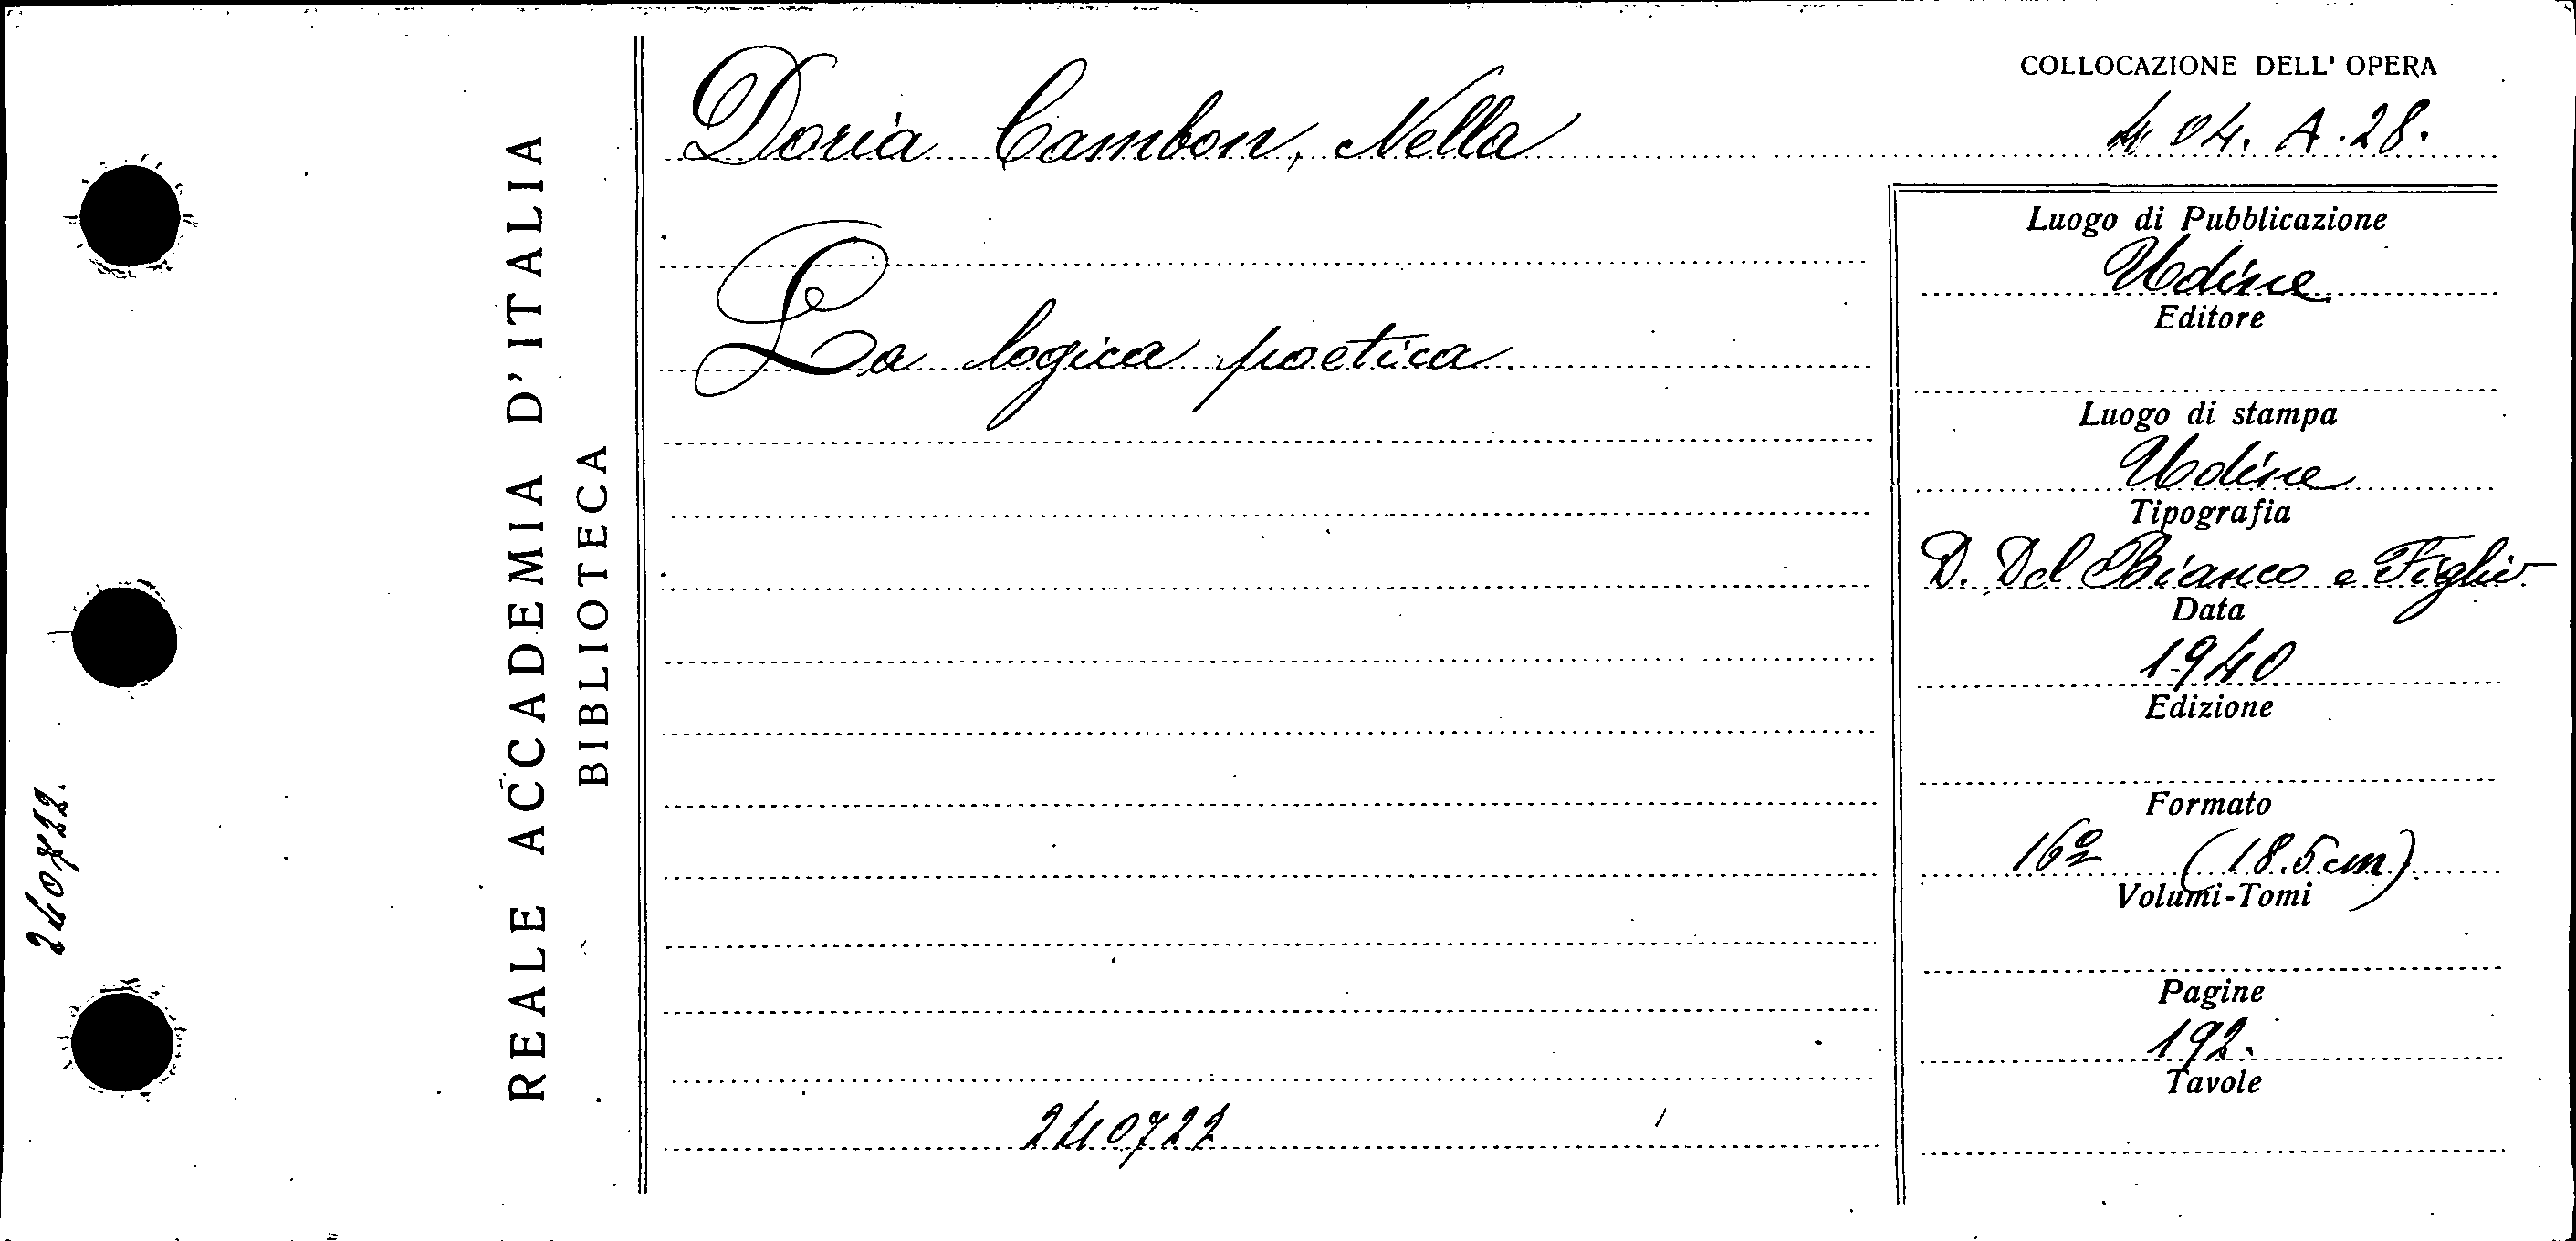 240722.
REALE ACCADEMIA D'ITALIA
BIBLIOTECA
Doria Cambon, Nella
La logica poetica.
240722
COLLOCAZIONE DELL' OPERA
404. A. 28.
Luogo di Pubblicazione
Udine
Editore
Luogo di stampa
Udine
Tipografia
D. Del Bianco e Figlio
Data
1940
Edizione
Formato
16º (18.5 cm)
Volumi-Tomi
Pagine
192.
Tavole